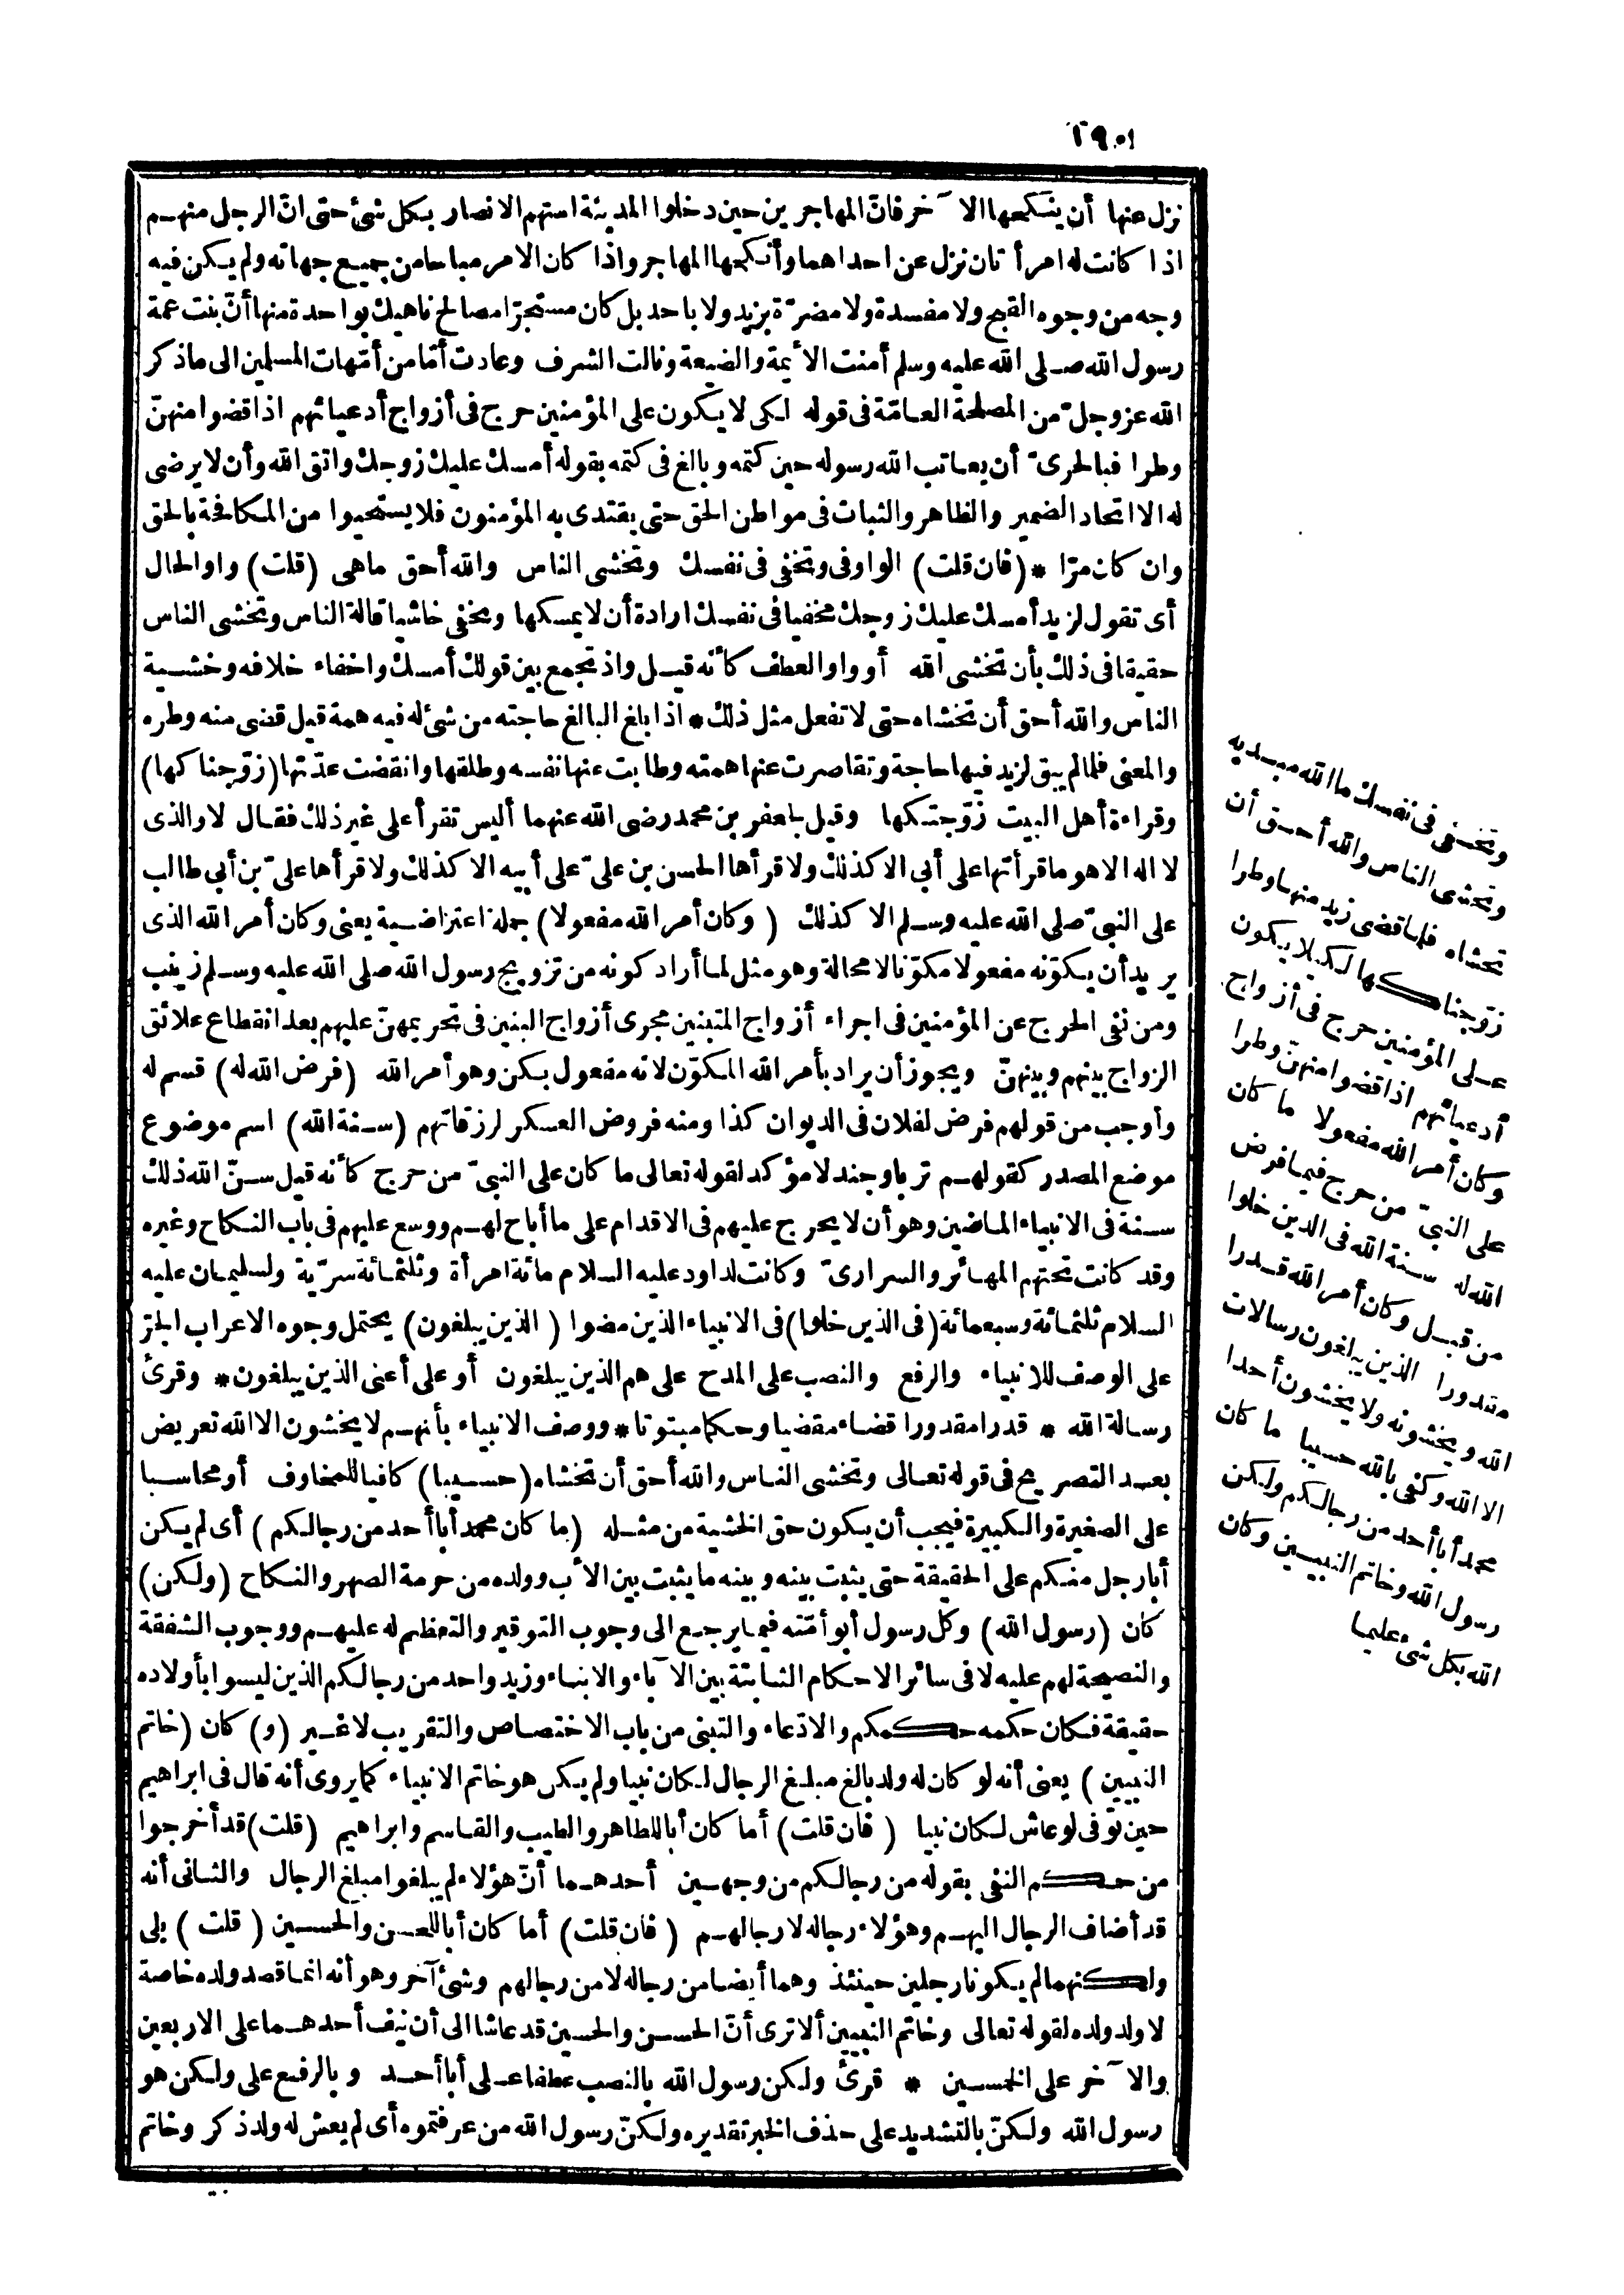 نزل عنها أن ينكحها الآخر فان المهاجرين حين دخلوا المدينة استهم الانصار بكل شئ حتى انّ الرجل منهم
اذا كانت له امرأتان نزل عن احداهما وأنكحها المهاجر واذا كان الامر مباحا من جميع جهاته ولم يكن فيه
وجه من وجوه القبح ولا مفسدة ولا مضرّة بزيد ولا باحد بل كان مستجرّا مصالح ناهيك بواحدة منها أنّ بنت عمة
رسول الله صلى الله عليه وسلم أمنت الأيمة والضيعة ونالت الشرف وعادت أمّا من أمّهات المسلمين الى ما ذكر
الله عز وجلّ من المصلحة العامّة فى قوله لكى لا يكون على المؤمنين حرج فى أزواج أدعيائهم اذا قضوا منهنّ
وطرا فبالحرىّ أن يعاتب الله رسوله حين كتمه وبالغ فى كتمه بقوله أمسك عليك زوجك واتق الله وأن لا يرضى
له الا اتحاد الضمير والظاهر والثبات فى مواطن الحق حتى يقتدى به المؤمنون فلا يستحيوا من المكافحة بالحق
وان كان مرّا * (فان قلت) الواو فى وتخفى فى نفسك وتخشى الناس والله أحق ماهى (قلت) واو الحال
أى تقول لزيد أمسك عليك زوجك مخفيا فى نفسك ارادة أن لا يمسكها وتخفى خاشيا قالة الناس وتخشى الناس
حقيقا فى ذلك بأن تخشى الله أو واو العطف كأنه قيل واذ تجمع بين قولك أمسك واخفاء خلافه وخشية
الناس والله أحق أن تخشاه حتى لا تفعل مثل ذلك * اذا بلغ البالغ حاجته من شئ له فيه همة قيل قضى منه وطره
والمعنى فلما لم يبق لزيد فيها حاجة وتقاصرت عنها همته وطابت عنها نفسه وطلقها وانقضت عدّتها (زوّجناكها)
وقراءة أهل البيت زوّجتكها وقيل لجعفر بن محمد رضى الله عنهما أليس تقرأ على غير ذلك فقال لا والذى
لا اله الا هو ما قرأتها على أبى الا كذلك ولا قرأها الحسن بن علىّ على أبيه الا كذلك ولا قرأها علىّ بن أبى طالب
على النبىّ صلى الله عليه وسلم الا كذلك (وكان أمر الله مفعولا) جملة اعتراضية يعنى وكان أمر الله الذى
يريد أن يكوّنه مفعولا مكوّنا لا محالة وهو مثل لما أراد كونه من تزويج رسول الله صلى الله عليه وسلم زينب
ومن نفى الحرج عن المؤمنين فى اجراء أزواج المتبنين مجرى أزواج البنين فى تحريمهنّ عليهم بعد انقطاع علائق
الزواج بينهم وبينهنّ ويجوز أن يراد بأمر الله المكوّن لانه مفعول بكن وهو أمر الله (فرض الله له) قسم له
وأوجب من قولهم فرض لفلان فى الديوان كذا ومنه فروض العسكر لرزقاتهم (سنة الله) اسم موضوع
موضع المصدر كقولهم تربا وجندلا مؤكد لقوله تعالى ما كان على النبىّ من حرج كأنه قيل سنّ الله ذلك
سنة فى الانبياء الماضين وهو أن لا يحرج عليهم فى الاقدام على ما أباح لهم ووسع عليهم فى باب النكاح وغيره
وقد كانت تحتهم المهائر والسرارىّ وكانت لداود عليه السلام مائة امرأة وثلثمائة سرّية ولسليمان عليه
السلام ثلثمائة وسبعمائة (فى الذين خلوا) فى الانبياء الذين مضوا (الذين يبلغون) يحتمل وجوه الاعراب الجرّ
على الوصف للانبياء والرفع والنصب على المدح على هم الذين يبلغون أو على أعنى الذين يبلغون * وقرئ
رسالة الله * قدرا مقدورا قضاء مقضيا وحكما مبتوتا * ووصف الانبياء بأنهم لا يخشون الا الله تعريض
بعد التصريح فى قوله تعالى وتخشى الناس والله أحق أن تخشاه (حسيبا) كافيا للمخاوف أو محاسبا
على الصغيرة والكبيرة فيجب أن يكون حق الخشية من مثله (ما كان محمد أبا أحد من رجالكم) أى لم يكن
أبا رجل منكم على الحقيقة حتى يثبت بينه وبينه ما يثبت بين الأب وولده من حرمة الصهر والنكاح (ولكن)
كان (رسول الله) وكل رسول أبو أمّته فيما يرجع الى وجوب التوقير والتعظيم له عليهم ووجوب الشفقة
والنصيحة لهم عليه لا فى سائر الاحكام الثابتة بين الآباء والابناء وزيد واحد من رجالكم الذين ليسوا بأولاده
حقيقة فكان حكمه حكمكم والادّعاء والتبنى من باب الاختصاص والتقريب لا غير (و) كان (خاتم
النبيين) يعنى أنه لو كان له ولد بالغ مبلغ الرجال لكان نبيا ولم يكن هو خاتم الانبياء كما يروى أنه قال فى ابراهيم
حين توّفى لو عاش لكان نبيا (فان قلت) أما كان أبا للطاهر والطيب والقاسم وابراهيم (قلت) قد أخرجوا
من حكم النفى بقوله من رجالكم من وجهين أحدهما أنّ هؤلاء لم يبلغوا مبلغ الرجال والثانى أنه
قد أضاف الرجال اليهم وهؤلاء رجاله لا رجالهم (فان قلت) أما كان أبا للحسن والحسين (قلت) بلى
ولكنهما لم يكونا رجلين حينئذ وهما أيضا من رجاله لا من رجالهم وشئ آخر وهو أنه انما قصد ولده خاصة
لا ولد ولده لقوله تعالى وخاتم النبيين ألا ترى أنّ الحسن والحسين قد عاشا الى أن نيف أحدهما على الاربعين
والآخر على الخمسين * قرئ ولكن رسول الله بالنصب عطفا على أبا أحد وبالرفع على ولكن هو
رسول الله ولكنّ بالتشديد على حذف الخبر تقديره ولكنّ رسول الله من عرفتموه أى لم يعش له ولد ذكر وخاتم
وتخفى فى نفسك ما الله مبديه
وتخشى الناس والله أحق أن
تخشاه فلما قضى زيد منها وطرا
زوّجناكها لكيلا يكون
على المؤمنين حرج فى أزواج
أدعيائهم اذا قضوا منهنّ وطرا
وكان أمر الله مفعولا ما كان
على النبىّ من حرج فيما فرض
الله له سنة الله فى الذين خلوا
من قبل وكان أمر الله قدرا
مقدورا الذين يبلغون رسالات
الله ويخشونه ولا يخشون أحدا
الا الله وكفى بالله حسيبا ما كان
محمد أبا أحد من رجالكم ولكن
رسول الله وخاتم النبيين وكان
الله بكل شئ عليما